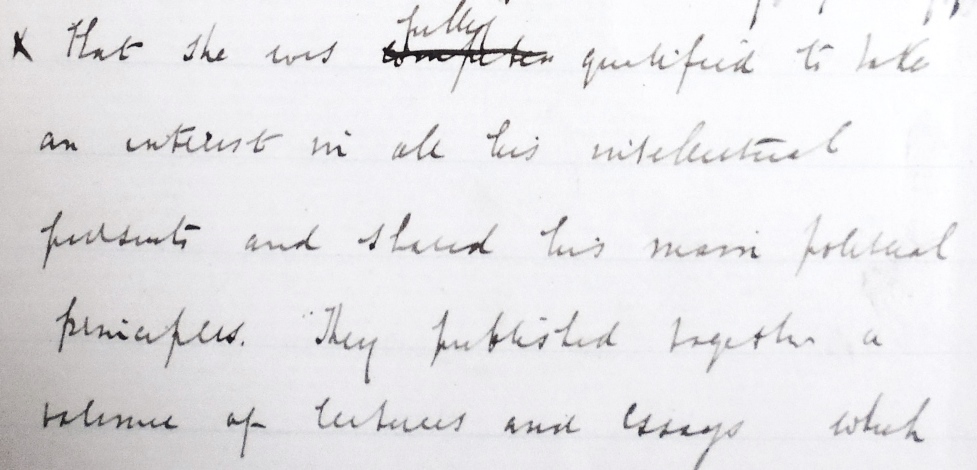 x that she was fully qualified to take
an interest in all his intellectual
pursuits and shared his main political
principles. They published together a
volume of lectures and essays which